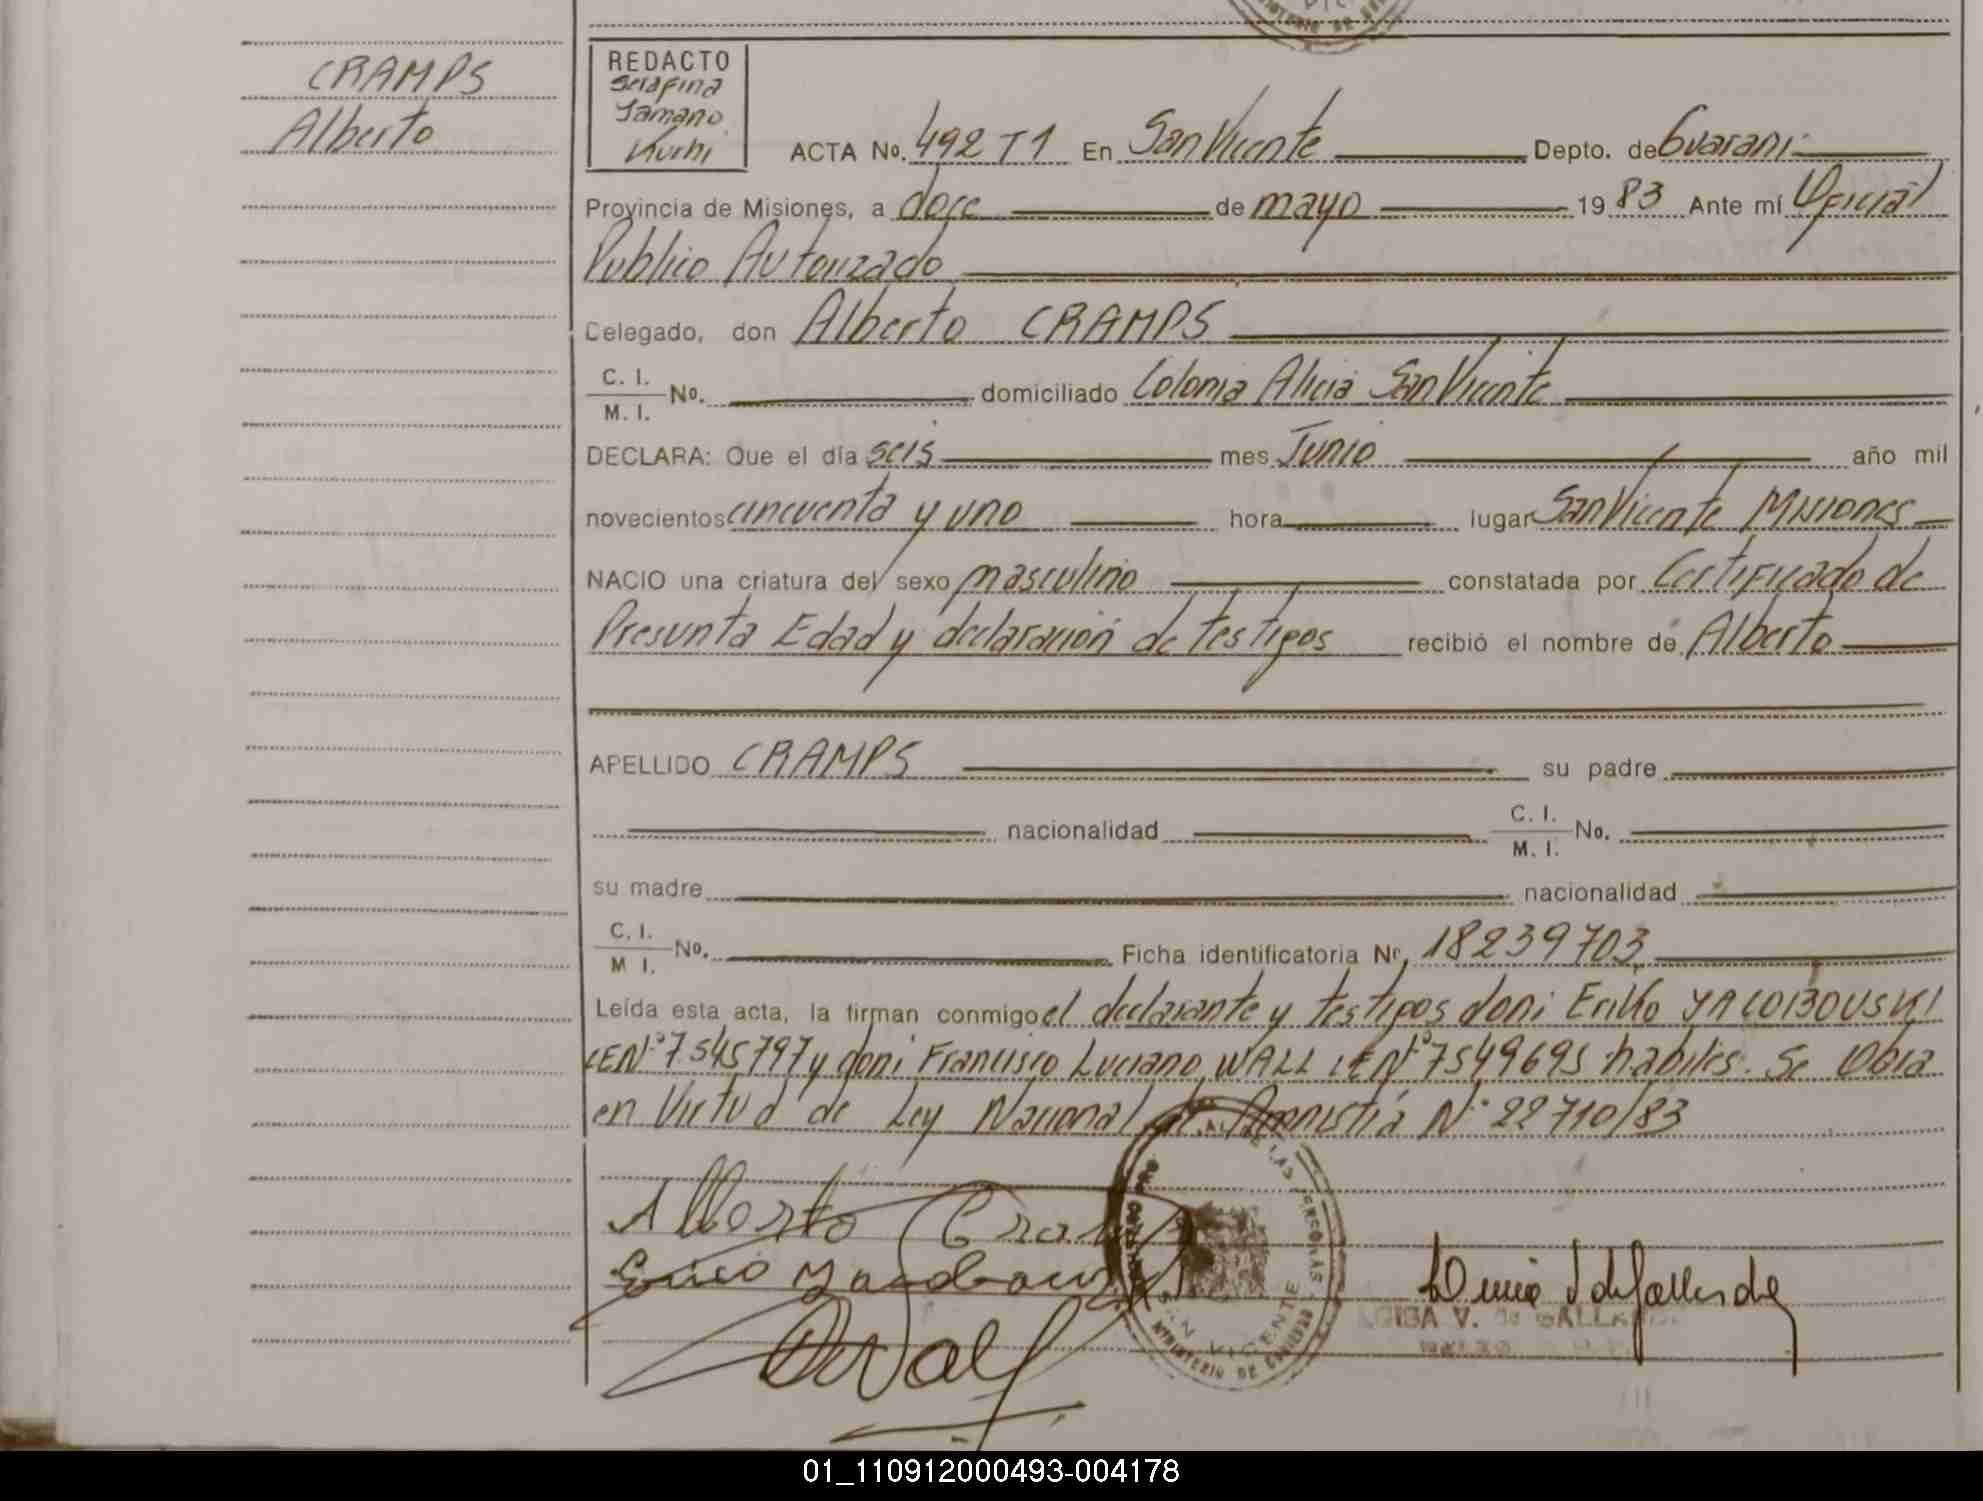 CRAMPS
Alberto
REDACTO
Serafina
Tamano
Kuchi
ACTA No. 492 T1 En San Vicente Depto. de Guarani
Provincia de Misiones, a doce de mayo 19 83 Ante mí Oficial
Publico Autorizado
Celegado, don Alberto CRAMPS
C. I.
M. I. No. domiciliado Colonia Alicia San Vicente
DECLARA: Que el día seis mes Junio año mil
novecientos cincuenta y uno hora lugar San Vicente Misiones
NACIO una criatura del sexo masculino constatada por Certificado de
Presunta Edad y declaración de testigos recibió el nombre de Alberto
APELLIDO CRAMPS su padre
nacionalidad C. I.
M. I. No.
su madre nacionalidad
C. I.
M I. No. Ficha identificatoria Nr. 18239703
Leída esta acta, la firman conmigo el declarante y testigos don: Eriko YACOBOUSKI
LEN° 7.545797 y don: Francisco Luciano WALL LEN° 7549695 habiles. Se Obra
en Virtud de Ley Nacional de Amnistía N° 22710/83
Alberto Cramps
Erico
SAN VICENTE
MINISTERIO DE GOBIERNO
01_110912000493-004178